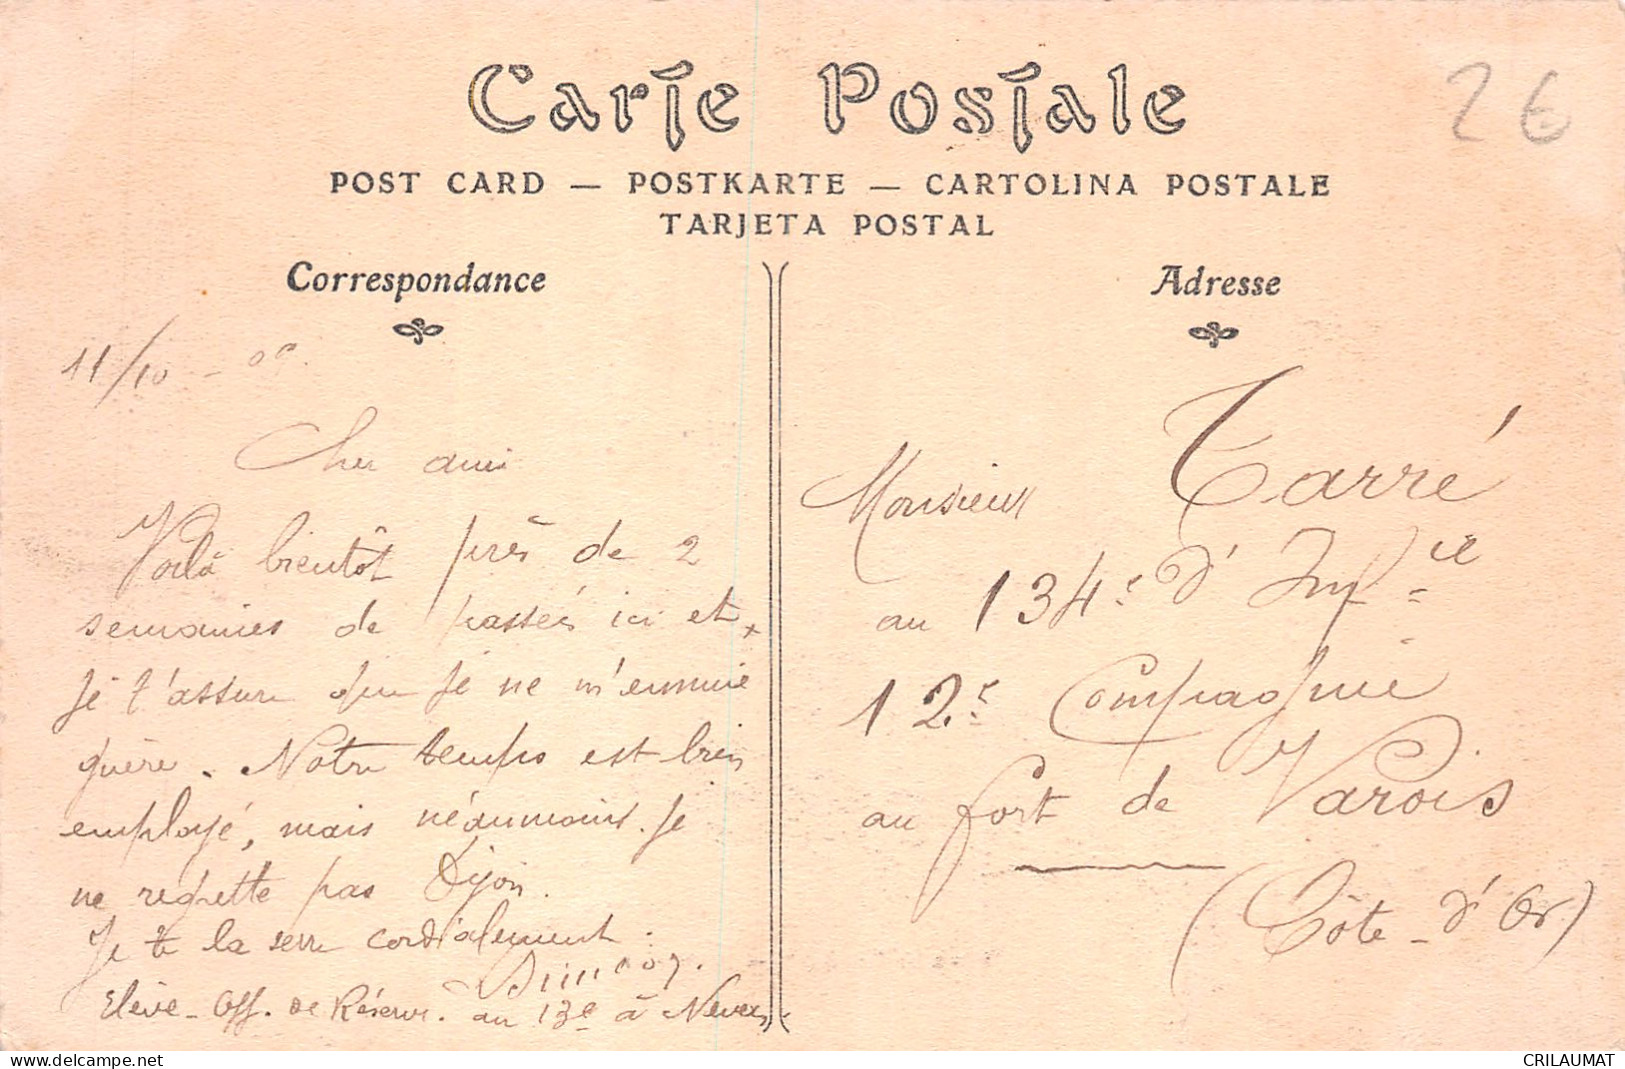 Carte Postale
2€
POST CARD — POSTKARTE — CARTOLINA POSTALE
TARJETA POSTAL
Correspondance
11/10
Cher ami
Voilà bientôt près de 2
semaines de passées ici et
je t'assure que je ne m'ennuie
guère. Notre temps est bien
employé, mais néanmoins je
ne regrette pas Dijon.
Je te la serre cordialement.
Elève-Off. de Réserve. au 13e à Nevers
Adresse
Monsieur Tarré
au 134e d'Infie
12e Compagnie
au fort de Varois
(Côte-d'Or)
www.delcampe.net
CRILAUMAT